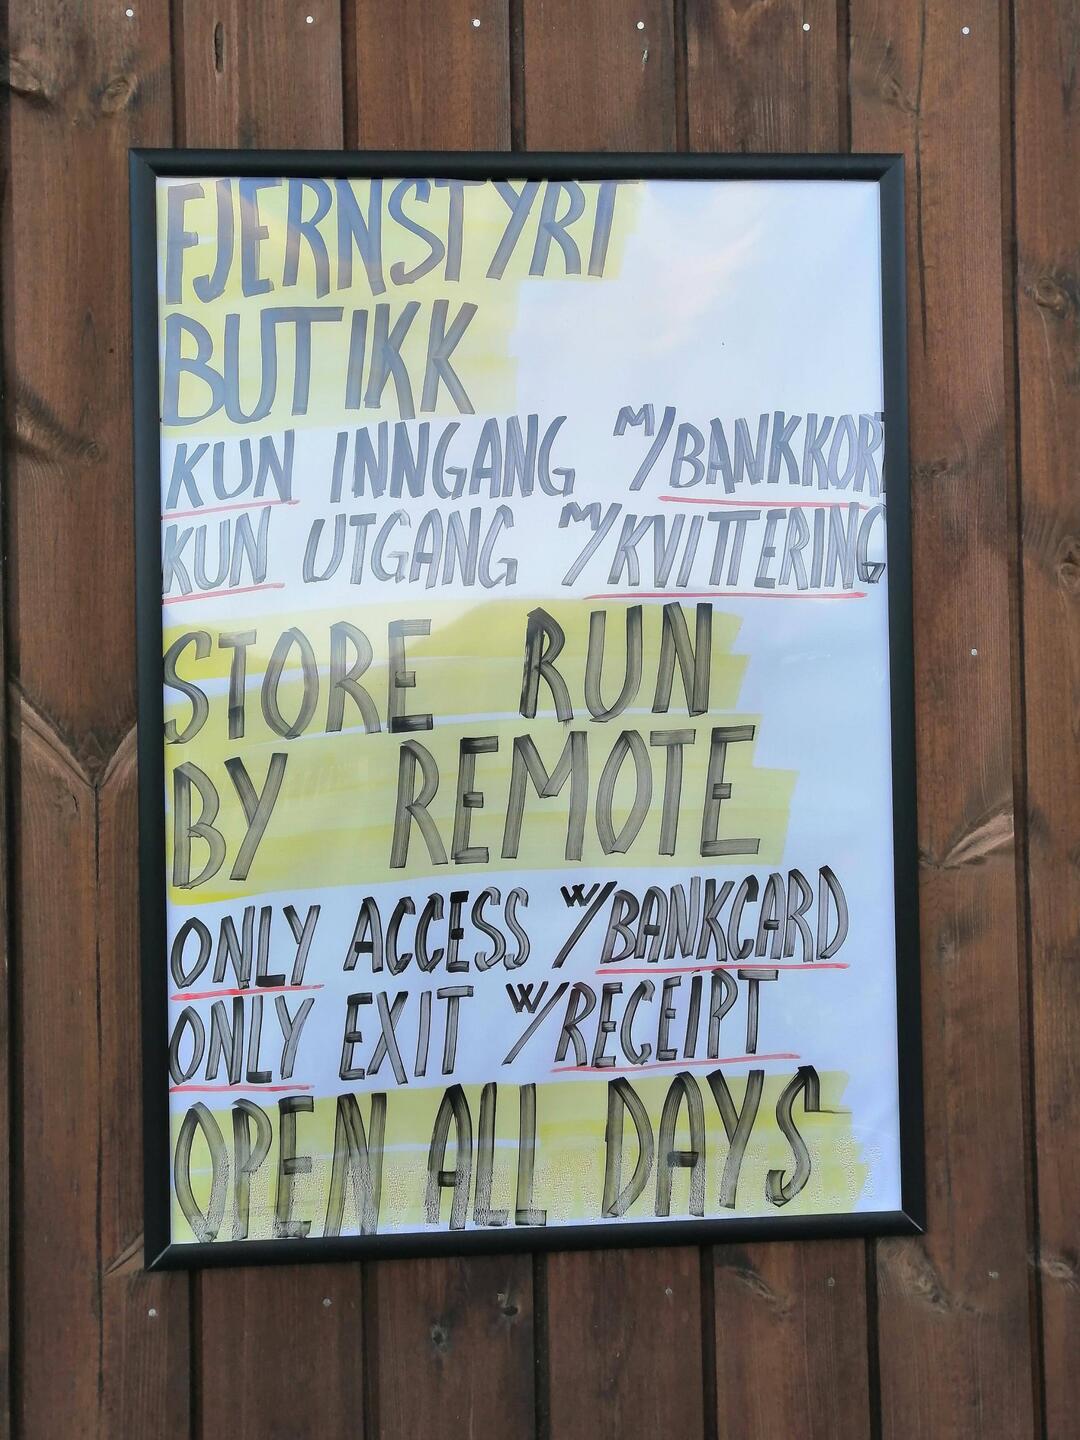 FJERNSTYRT
BUTIKK
KUN INNGANG M/BANKKORT
KUN UTGANG M/KVITTERING
STORE RUN
BY REMOTE
ONLY ACCESS W/BANKCARD
ONLY EXIT W/RECEIPT
OPEN ALL DAYS